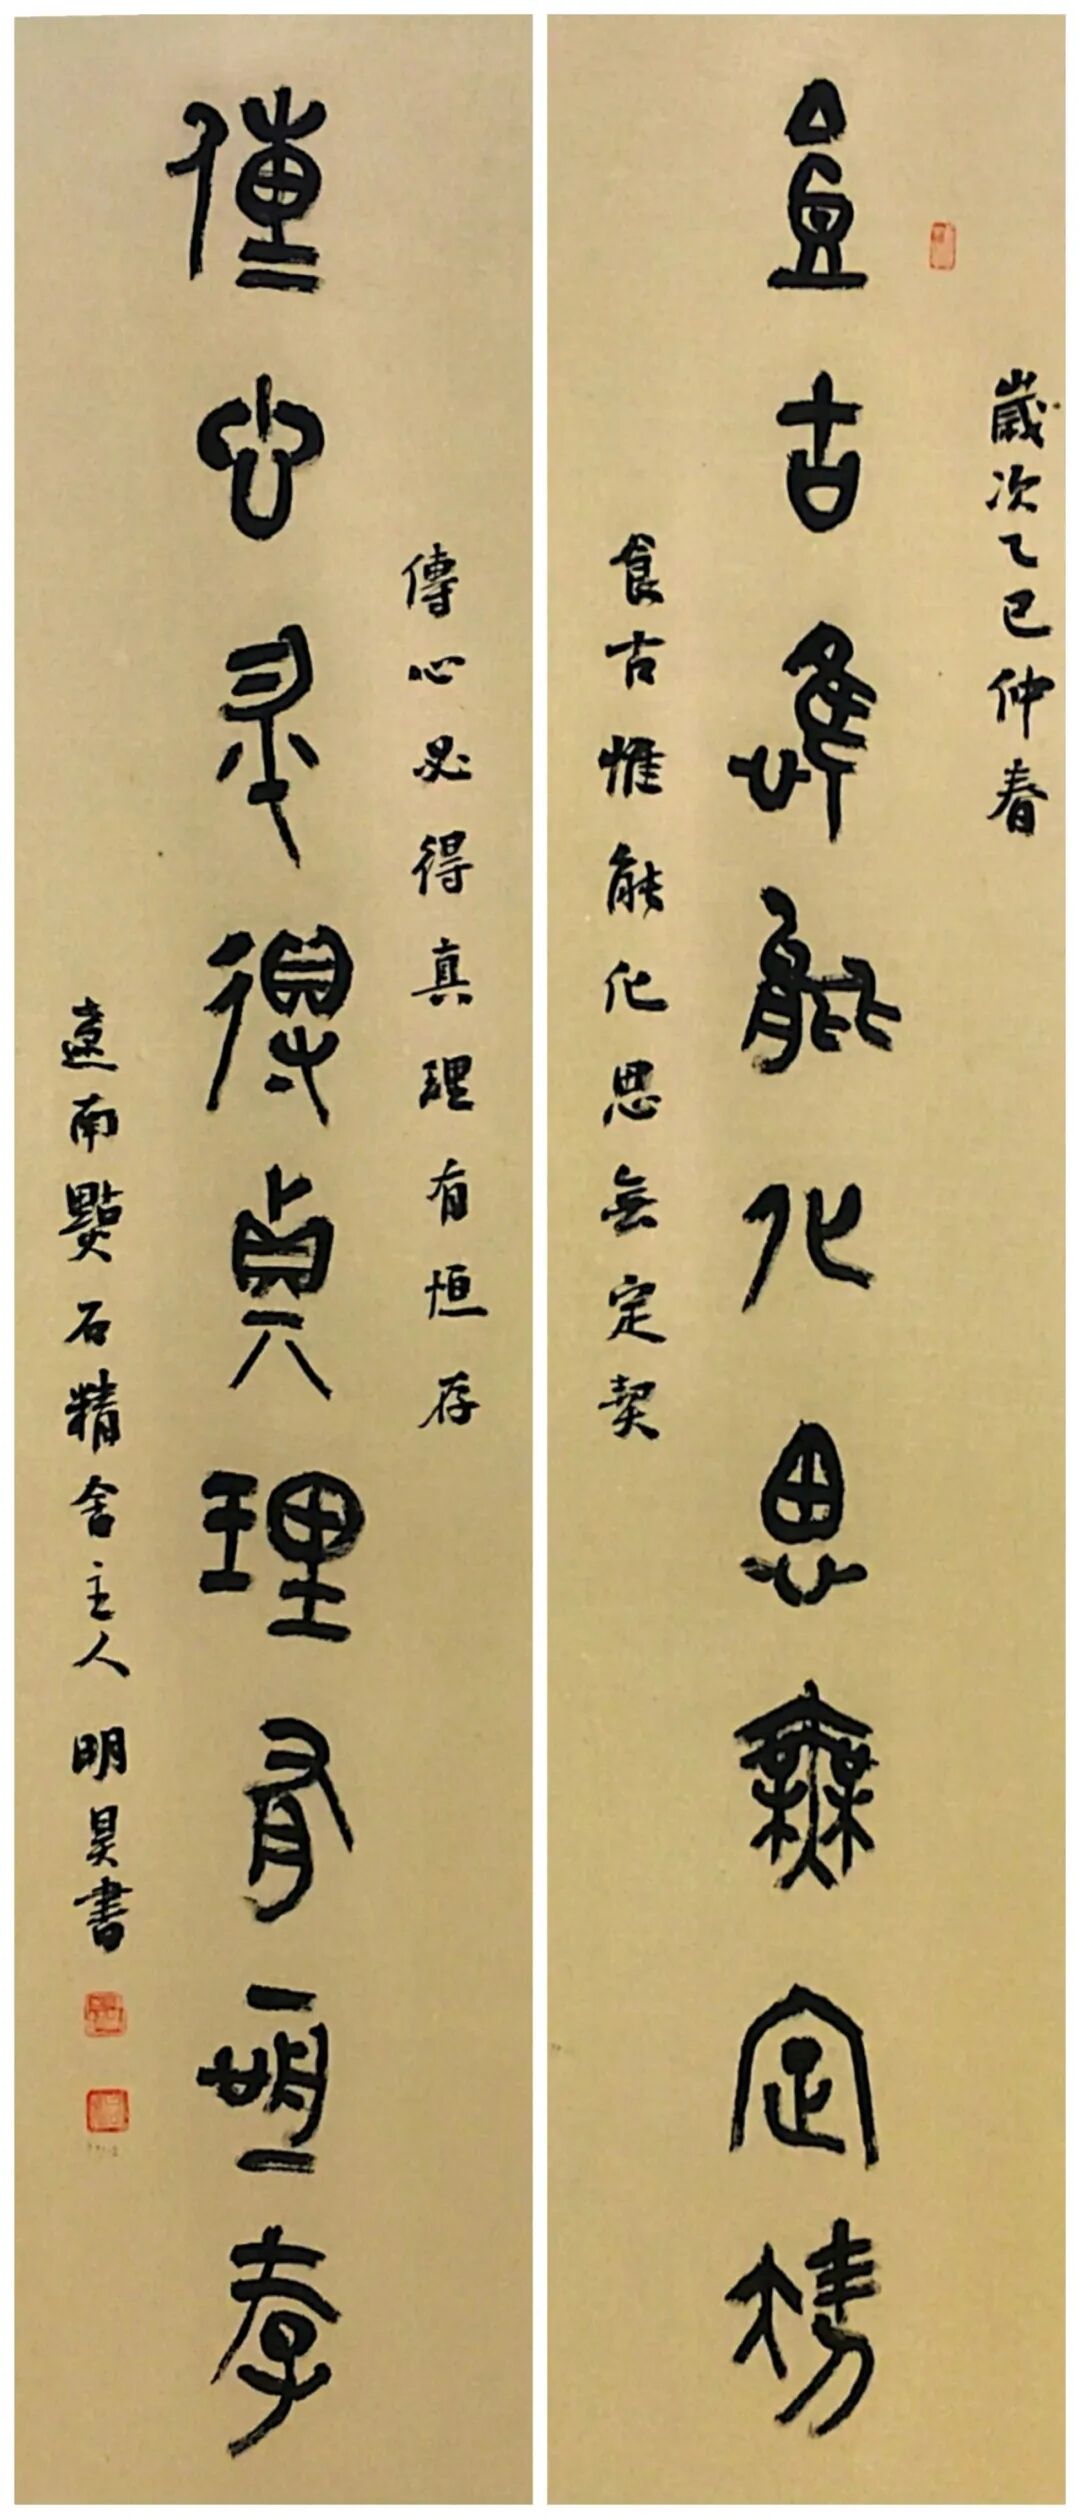 歲次乙巳仲春
食古惟能化思無定契
食古惟能化思無定契
傳心必得真理有恒存
傳心求得真理有恒存
遼南爂石精舍主人明昊書